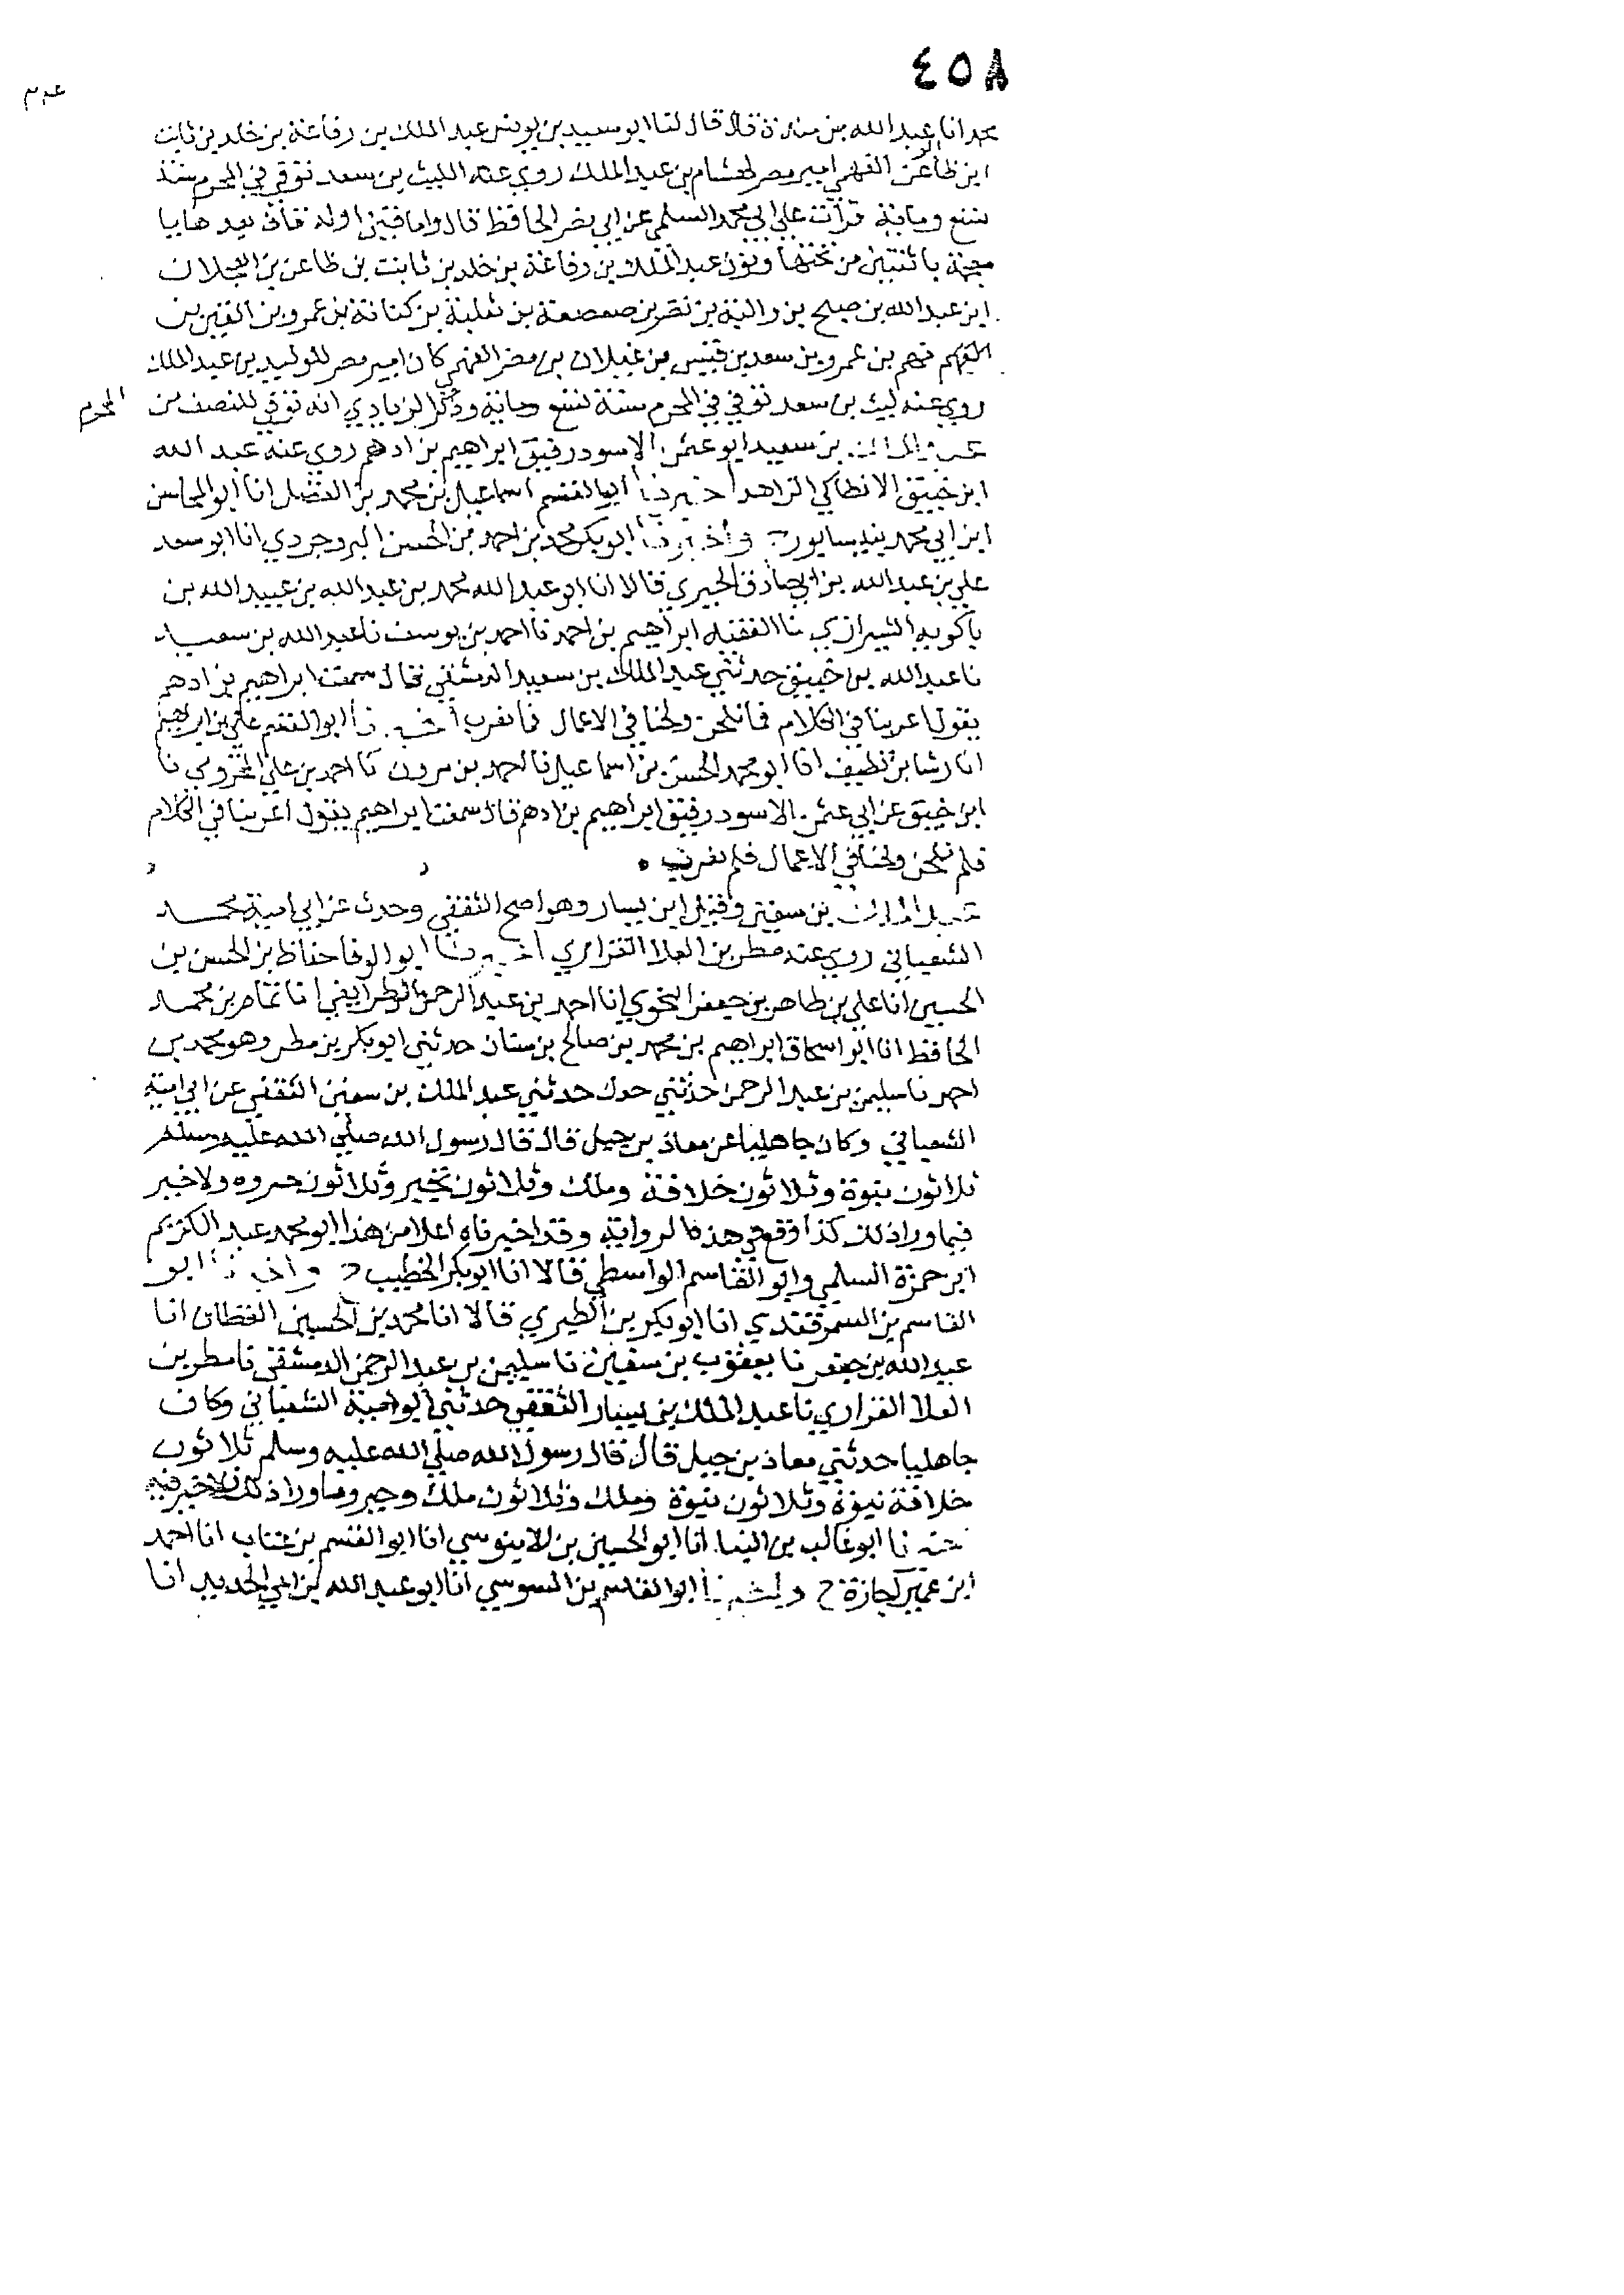 ٤٥٨
محمد انا عبد الله بن مندة قال قال لنا ابو سعيد بن يونس عبد الملك بن رفاعة بن خلد بن ثابت
ابن ظاعن الفهمي امير مصر لهشام بن عبد الملك روي عنه الليث بن سعد توفي في المحرم سنة
تسع وماية قرأت علي ابي محمد السلمي عن ابي نصر الحافظ قال واما قين اوله قاف بعدها يا
معجمة باثنتين من تحتها ونون عبد الملك بن رفاعة بن خلد بن ثابت بن ظاعن بن العجلان
ابن عبد الله بن صبح بن والبة بن نصر بن صعصعة بن ثعلبة بن كنانة بن عمرو بن القين بن
فهم بن عمرو بن سعد بن قيس بن غيلان بن مضر الفهمي كان امير مصر للوليد بن عبد الملك
روي عنه ليث بن سعد توفي في المحرم سنة تسع وماية وذكر الزيادي انه توفي للنصف من المحرم
عبد الملك بن سعيد ابو عثمن الاسود رفيق ابراهيم بن ادهم روي عنه عبد الله
ابن خبيق الانطاكي الزاهد اخبرنا ابو القسم اسماعيل بن محمد بن الفضل انا ابو المحاسن
ابن ابي محمد بنيسابور ح واخبرنا ابو بكر محمد بن احمد بن الحسن البروجردي انا ابو سعد
علي بن عبد الله بن ابي صادق الحيري قالا انا ابو عبد الله محمد بن عبد الله بن عبيد الله بن
باكويه الشيرازي نا الفقيه ابراهيم بن احمد نا احمد بن يوسف نا عبد الله بن سعيد
نا عبد الله بن خبيق حدثني عبد الملك بن سعيد الدمشقي قال سمعت ابراهيم بن ادهم
يقول اعربنا في الكلام فما نلحن ولحنا في الاعمال فما نعرب اخبرنا ابو القسم علي بن ابراهيم
انا رشا بن نظيف انا ابو محمد الحسن بن اسماعيل نا احمد بن مرون نا احمد بن علي المخزومي نا
ابن خبيق عن ابي عثمن الاسود رفيق ابراهيم بن ادهم قال سمعت ابراهيم يقول اعربنا في الكلام
فلم نلحن ولحنا في الاعمال فلم نعرب ٥
عبد الملك بن سفين وقيل ابن يسار وهو اصح الثقفي وحدث عن ابي امية يحمد
الشعباني روي عنه مطر بن العلا الفزاري اخبرنا ابو الوفا حفاظ بن الحسن بن
الحسين انا علي بن طاهر بن جعفر النحوي انا احمد بن عبد الرحمن الطرايفي انا تمام بن محمد
الحافظ انا ابو اسحاق ابراهيم بن محمد بن صالح بن سنان حدثني ابو بكر بن مطر وهو محمد بن
احمد نا سليمن بن عبد الرحمن حدثني حدك حدثني عبد الملك بن سفين الثقفي عن ابي امية
الشعباني وكان جاهليا عن معاذ بن جبل قال قال رسول الله صلي الله عليه وسلم
ثلاثون نبوة وثلاثون خلافة وملك وثلاثون تجبر وثلاثون حروه ولا خير
فيما ورا ذلك كذا وقع في هذه الرواية وقد اخبرناه اعلا من هذا ابو محمد عبد الكريم
ابن حمزة السلمي وابو القاسم الواسطي قالا انا ابو بكر الخطيب ح واخبرنا ابو
القاسم بن السمرقندي انا ابو بكر بن الطبري قالا انا محمد بن الحسين القطان انا
عبد الله بن جعفر نا يعقوب بن سفين نا سليمن بن عبد الرحمن الدمشقي نا مطر بن
العلا الفزاري نا عبد الملك بن يسار الثقفي حدثني ابو امية الشعباني وكان
جاهليا حدثني معاذ بن جبل قال قال رسول الله صلي الله عليه وسلم ثلاثون
خلافة نبوة وثلاثون نبوة وملك وثلاثون ملك وجبر وما ورا ذلك فلا خير فيه
اخبرنا ابو غالب بن البنا انا ابو الحسين بن الابنوسي انا ابو القسم بن عتاب انا احمد
ابن عمير اجازة ح واخبرنا ابو القاسم بن السوسي انا ابو عبد الله بن ابي الحديد انا